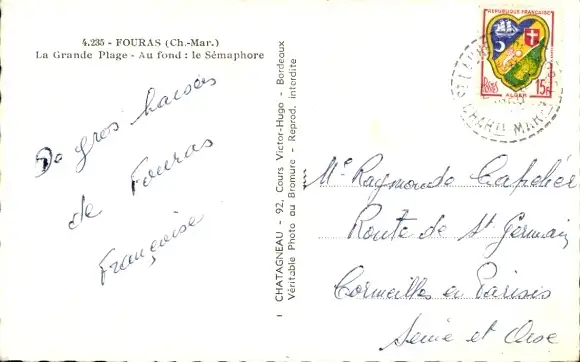 4.235 - FOURAS (Ch.-Mar.)
La Grande Plage - Au fond : le Sémaphore
De gros baisers
de Fouras
Françoise
CHATAGNEAU - 92, Cours Victor-Hugo - Bordeaux
Véritable Photo au Bromure - Reprod. interdite
REPUBLIQUE FRANÇAISE
POSTES
15F
ALGER
Raymonde
Route de St Germain
Cormeilles en Parisis
Seine et Oise